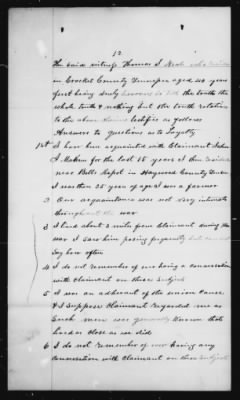 12
The said witness Thomas J. Nash who resides
in Crocket County Tennessee aged 44 years
first being duly sworn to tell the truth the
whole truth & nothing but the truth relative
to the above claim testifies as follows
Answer to questions as to Loyalty
1st I have been acquainted with Claimant John
J. for the last 15 years I then resided
near Bells Depot in Haywood County Tenn
I was then 25 years of age I was a farmer
2 Our acquaintance was not very intimate
throughout the war
3 I lived about 3 miles from Claimant during the
war I saw him passing frequently but cannot
say how often
4 I do not remember of ever having a conversation
with claimant on these subject
5 I was an adherent of the union cause
& I suppose Claimant regarded me as
such men was generally known that
lived as close as we did
6 I do not remember of ever having any
conversation with claimant on these subjects